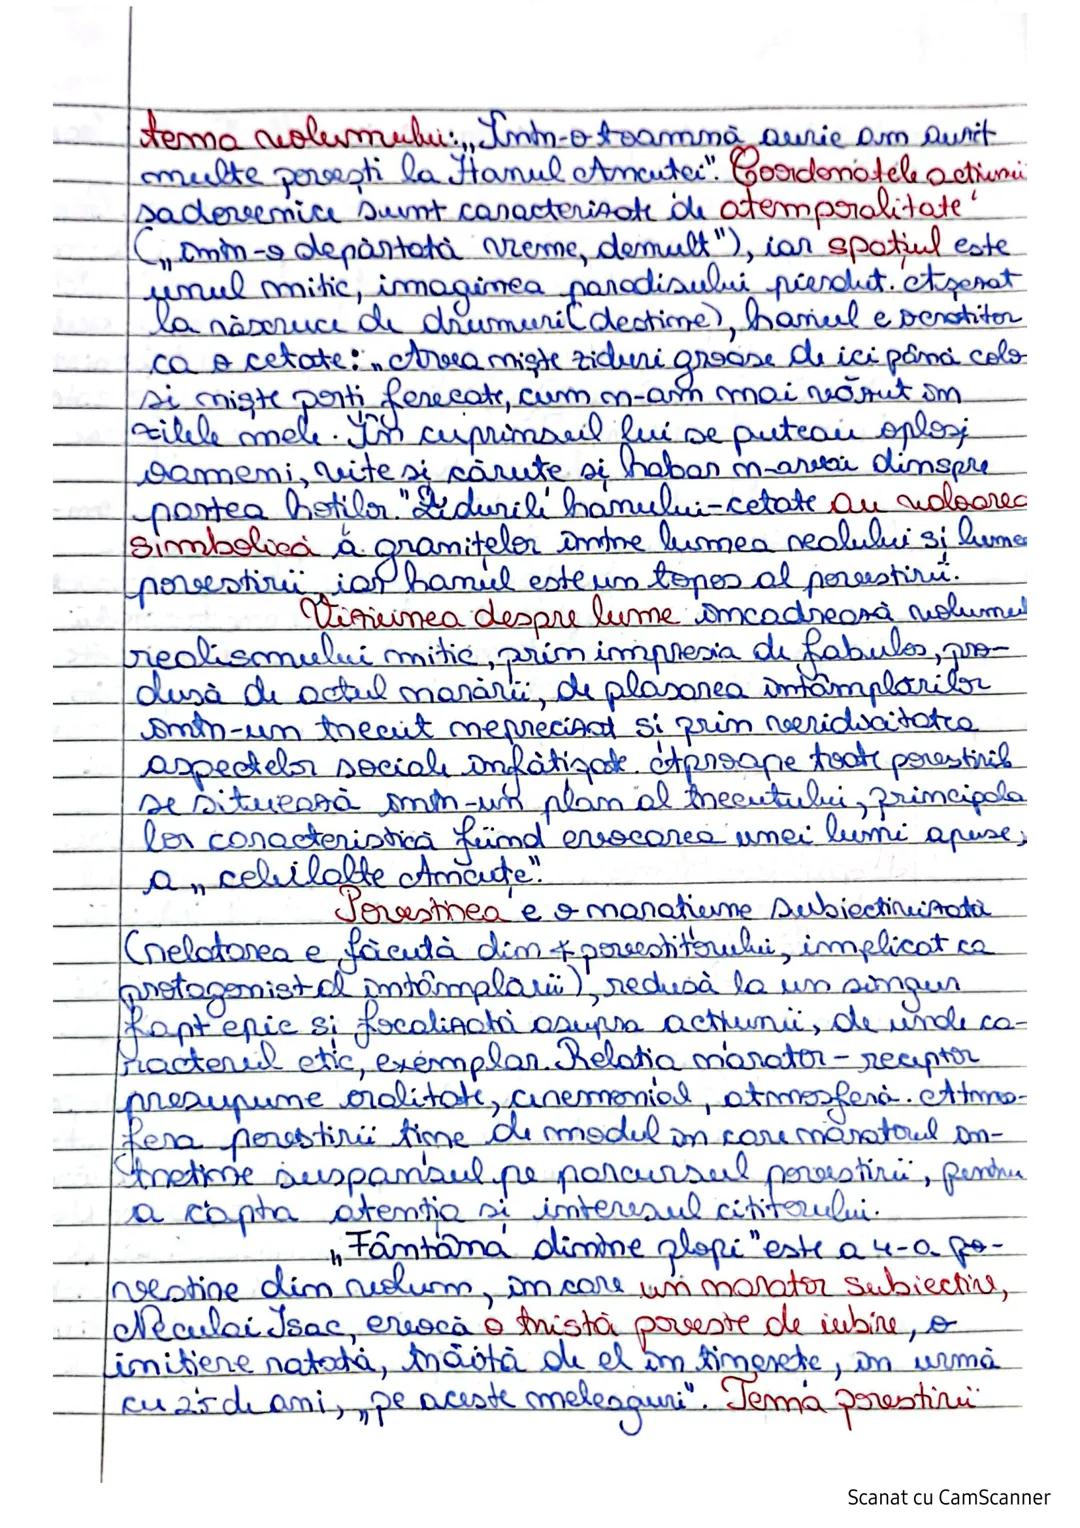 tema volumului: „Într-o toamnă aurie am auzit
multe povești la Hanul Ancuței". Coordonatele acțiunii
sadoveniene sunt caracterizate de atemporalitate
(„într-o depărtată vreme, demult"), iar spațiul este
unul mitic, imaginea paradisului pierdut. Așezat
la răscruce de drumuri (destine), hanul e ocrotitor
ca o cetate: „Avea niște ziduri groase de ici până colo
și niște porți ferecate, cum n-am mai văzut în
zilele mele. În cuprinsul lui se puteau oploși
oameni, vite și căruțe și habar n-aveai dinspre
partea hoților." Zidurile hanului-cetate au valoarea
simbolică a granițelor între lumea realului și lumea
povestirii, iar hanul este un topos al povestirii.
Viziunea despre lume încadrează volumul
realismului mitic, prin impresia de fabulos, pro-
dusă de actul narării, de plasarea întâmplărilor
într-un trecut neprecizat și prin veridicitatea
aspectelor sociale înfățișate. Aproape toate povestirile
se situează într-un plan al trecutului, principala
lor caracteristică fiind evocarea unei lumi apuse,
a „celeilalte Ancuțe".
Povestirea e o narațiune subiectivizată
(relatarea e făcută din + povestitorului, implicat ca
protagonist al întâmplării), redusă la un singur
fapt epic și focalizată asupra acțiunii, de unde ca-
racterul etic, exemplar. Relația narator-receptor
presupune oralitate, ceremonial, atmosferă. Atmos-
fera povestirii ține de modul în care naratorul în-
treține suspansul pe parcursul povestirii, pentru
a capta atenția și interesul cititorului.
„Fântâna dintre plopi" este a 4-a po-
vestire din volum, în care un narator subiectiv,
Neculai Isac, evocă o tristă poveste de iubire, o
inițiere ratată, trăită de el în tinerețe, în urmă
cu 25 de ani, „pe aceste meleaguri". Tema povestirii
Scanat cu CamScanner